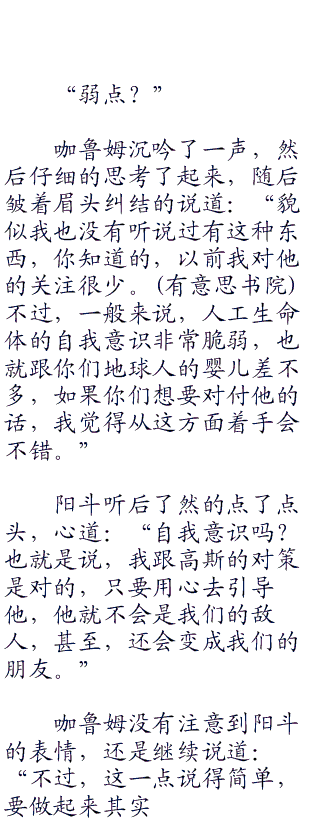 “弱点？”
咖鲁姆沉吟了一声，然
后仔细的思考了起来，随后
皱着眉头纠结的说道：“貌
似我也没有听说过有这种东
西，你知道的，以前我对他
的关注很少。(有意思书院)
不过，一般来说，人工生命
体的自我意识非常脆弱，也
就跟你们地球人的婴儿差不
多，如果你们想要对付他的
话，我觉得从这方面着手会
不错。”
阳斗听后了然的点了点
头，心道：“自我意识吗？
也就是说，我跟高斯的对策
是对的，只要用心去引导
他，他就不会是我们的敌
人，甚至，还会变成我们的
朋友。”
咖鲁姆没有注意到阳斗
的表情，还是继续说道：
“不过，这一点说得简单，
要做起来其实